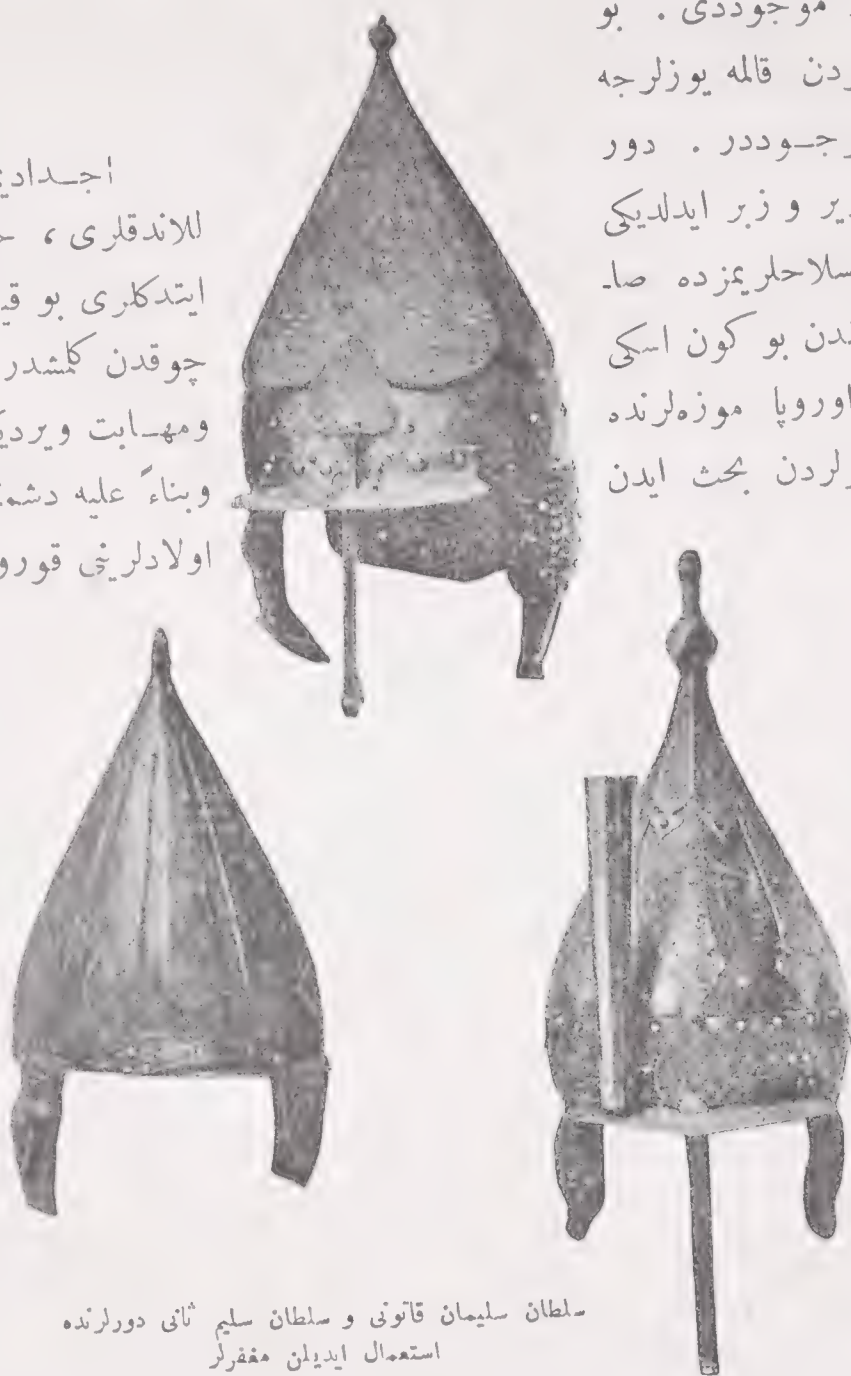 موجوددی . بو
ردن قالمه یوزلرجه
جـوددر . دور
یر و زبر ایدلدیکی
سلاحلریمزده صاـ
ندن بو کون اسکی
اوروپا موزه‌لرنده
رلردن بحث ایدن
اجـدادی
للاندقلری ، ح
ایتدکلری بو قی
چوقدن کلمشدر
ومهـابت ویردی
وبناءً علیه دشمن
اولادلرینی قورو
سلطان سلیمان قانونی و سلطان سلیم ثانی دورلرنده
استعمال ایدیلن مغفرلر